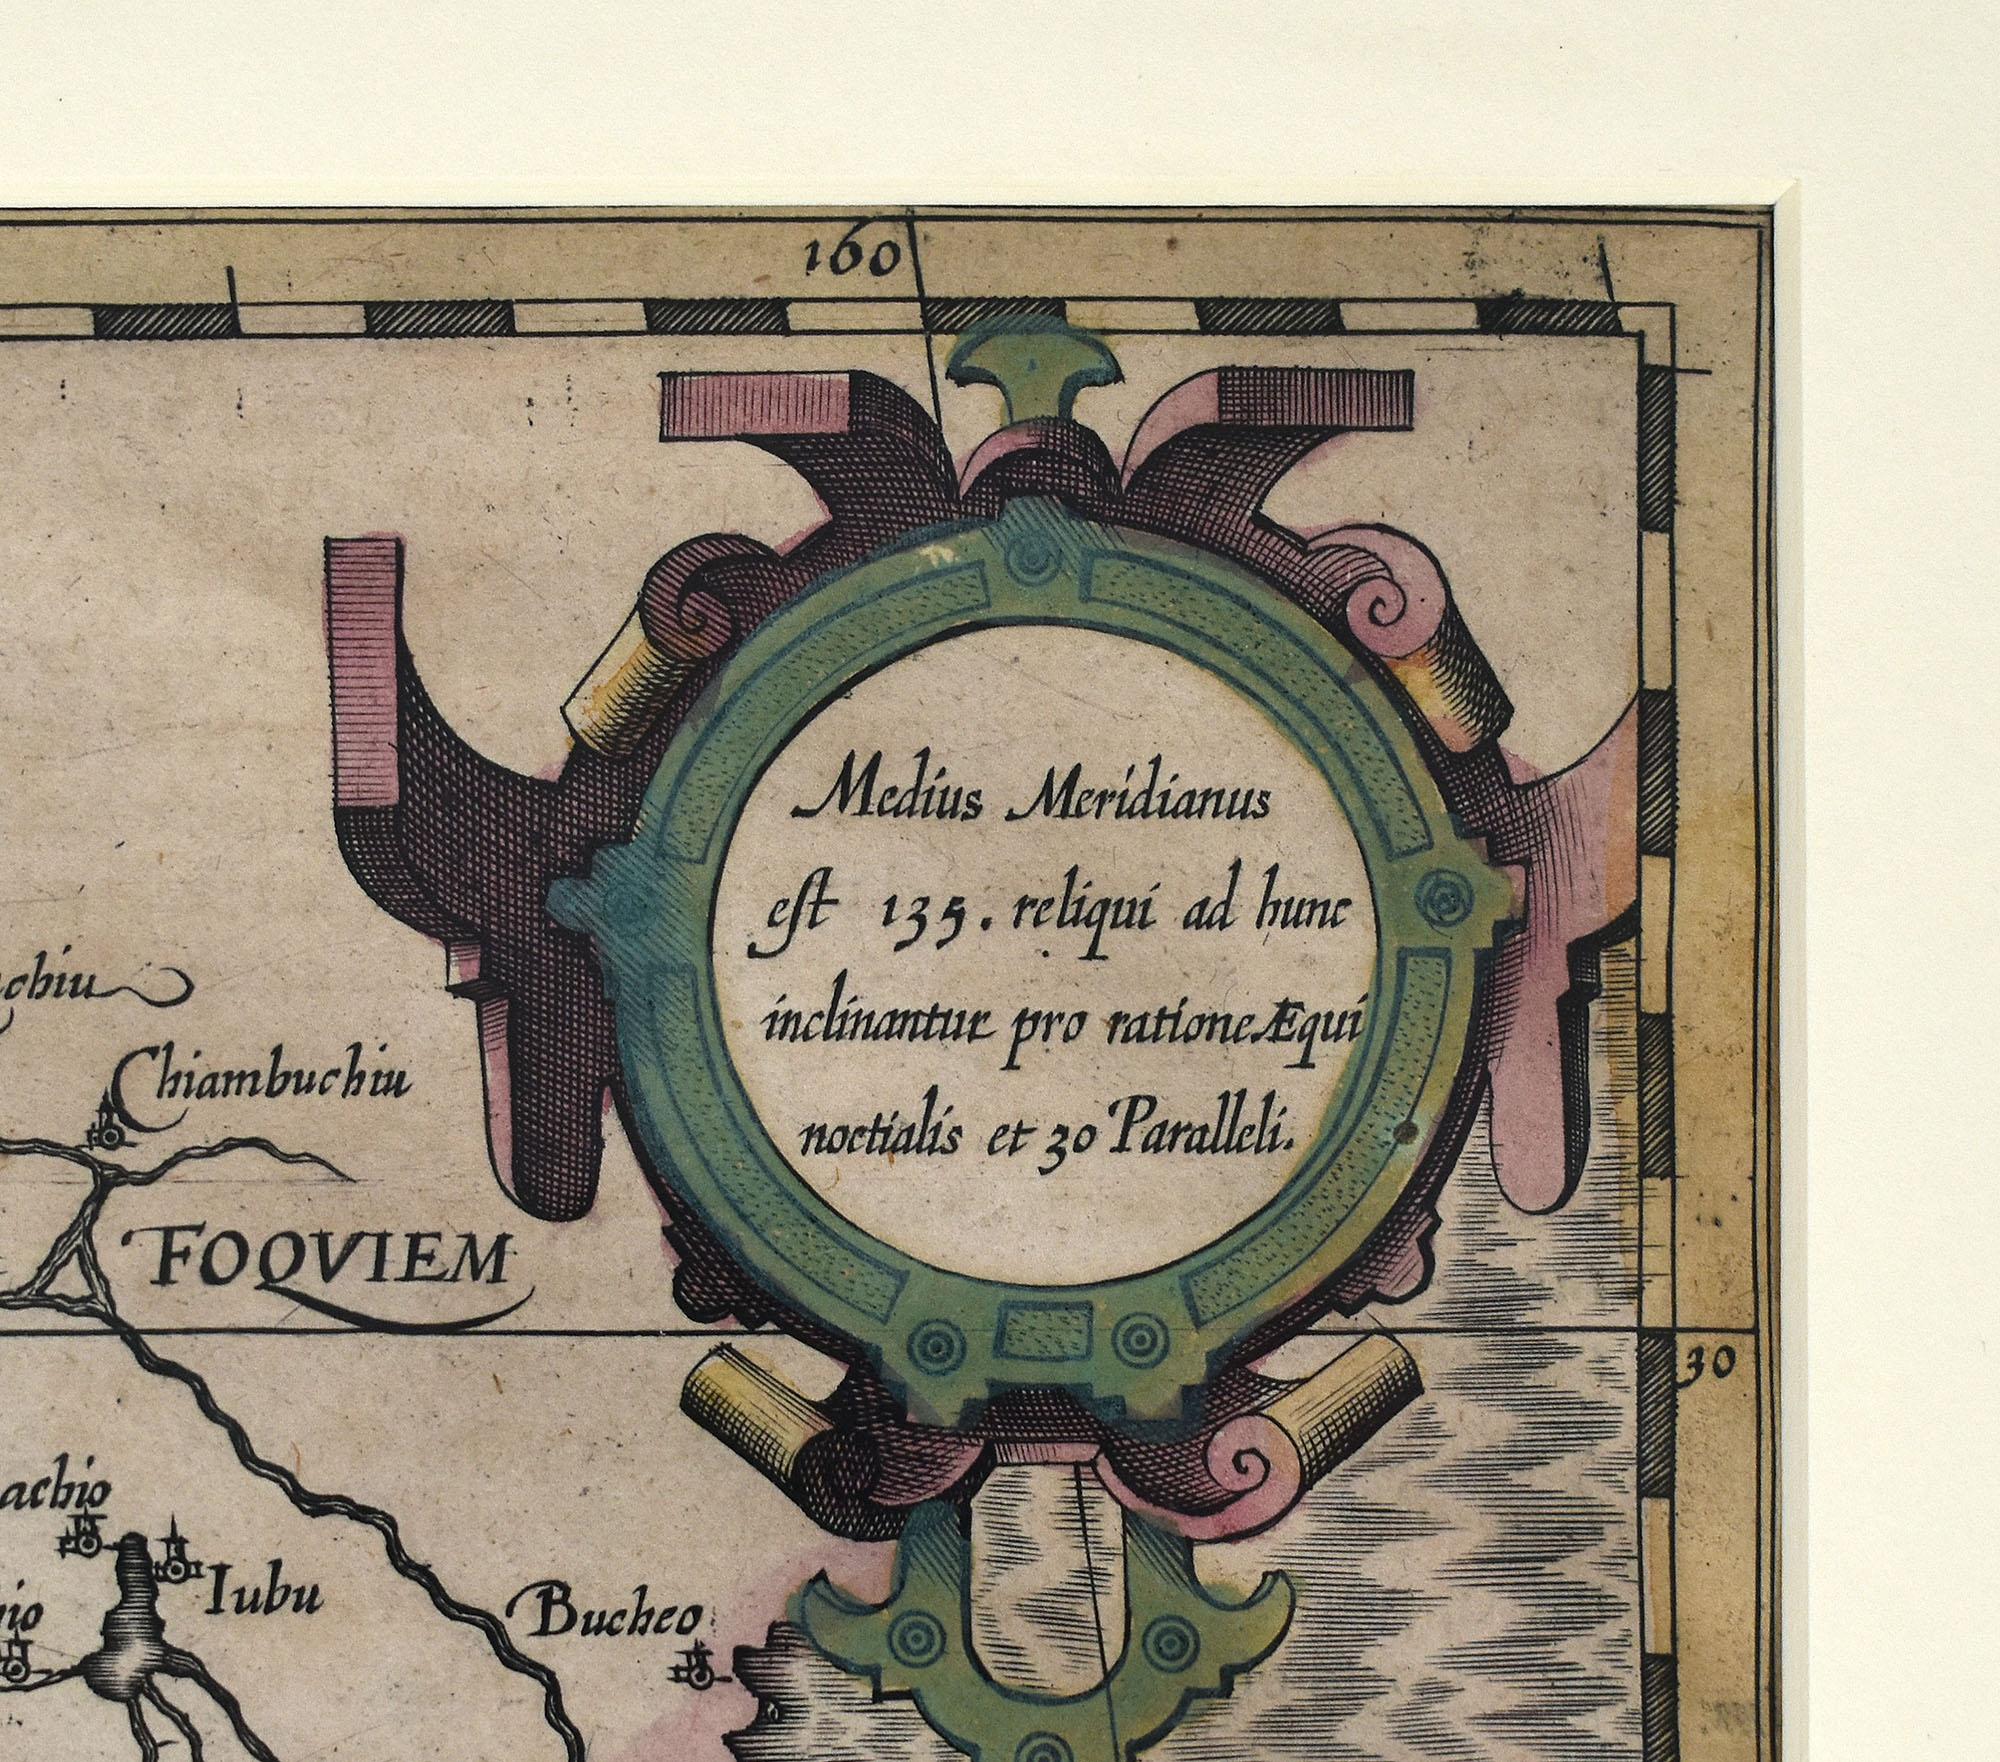 160
Medius Meridianus
est 135. reliqui ad hunc
inclinantur pro ratione Æqui
noctialis et 30 Paralleli.
chiu
Chiambuchiu
FOQVIEM
30
achio
Iubu
Bucheo